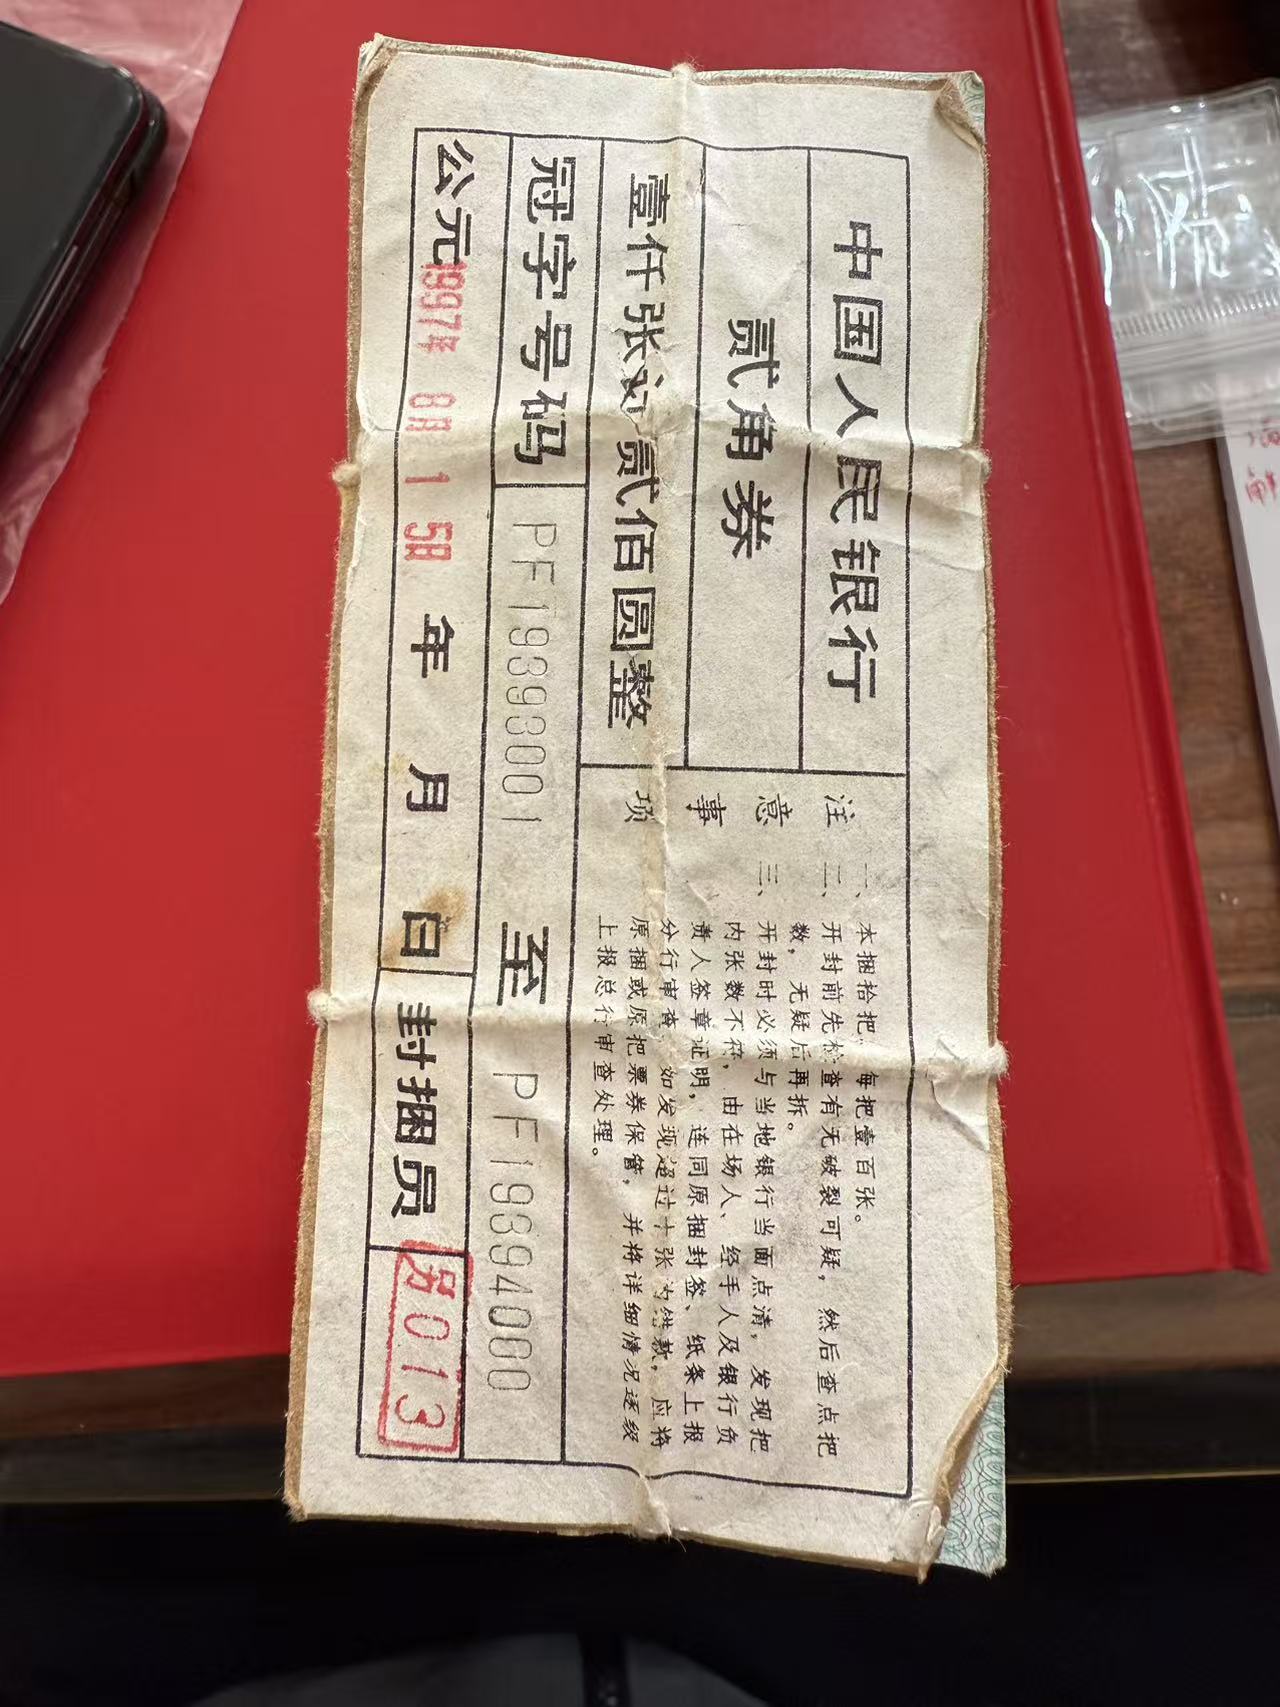 中国人民银行
贰角券
壹仟张计贰佰圆整
注意事项
一、本捆拾把，每把壹百张。
二、开封前先检查有无破裂可疑，然后查点把
数，无疑后再拆。
三、开封时必须与当地银行当面点清，发现把
内张数不符，由在场人、经手人及银行负
责人签章证明，连同原捆封签、纸条上报
分行审查，如发现超过十张的错款，应将
原捆或原把票券保管，并将详细情况逐级
上报总行审查处理。
冠字号码 PF19393001 至 PF19394000
公元1997年8月15日 年 月 日 封捆员 013